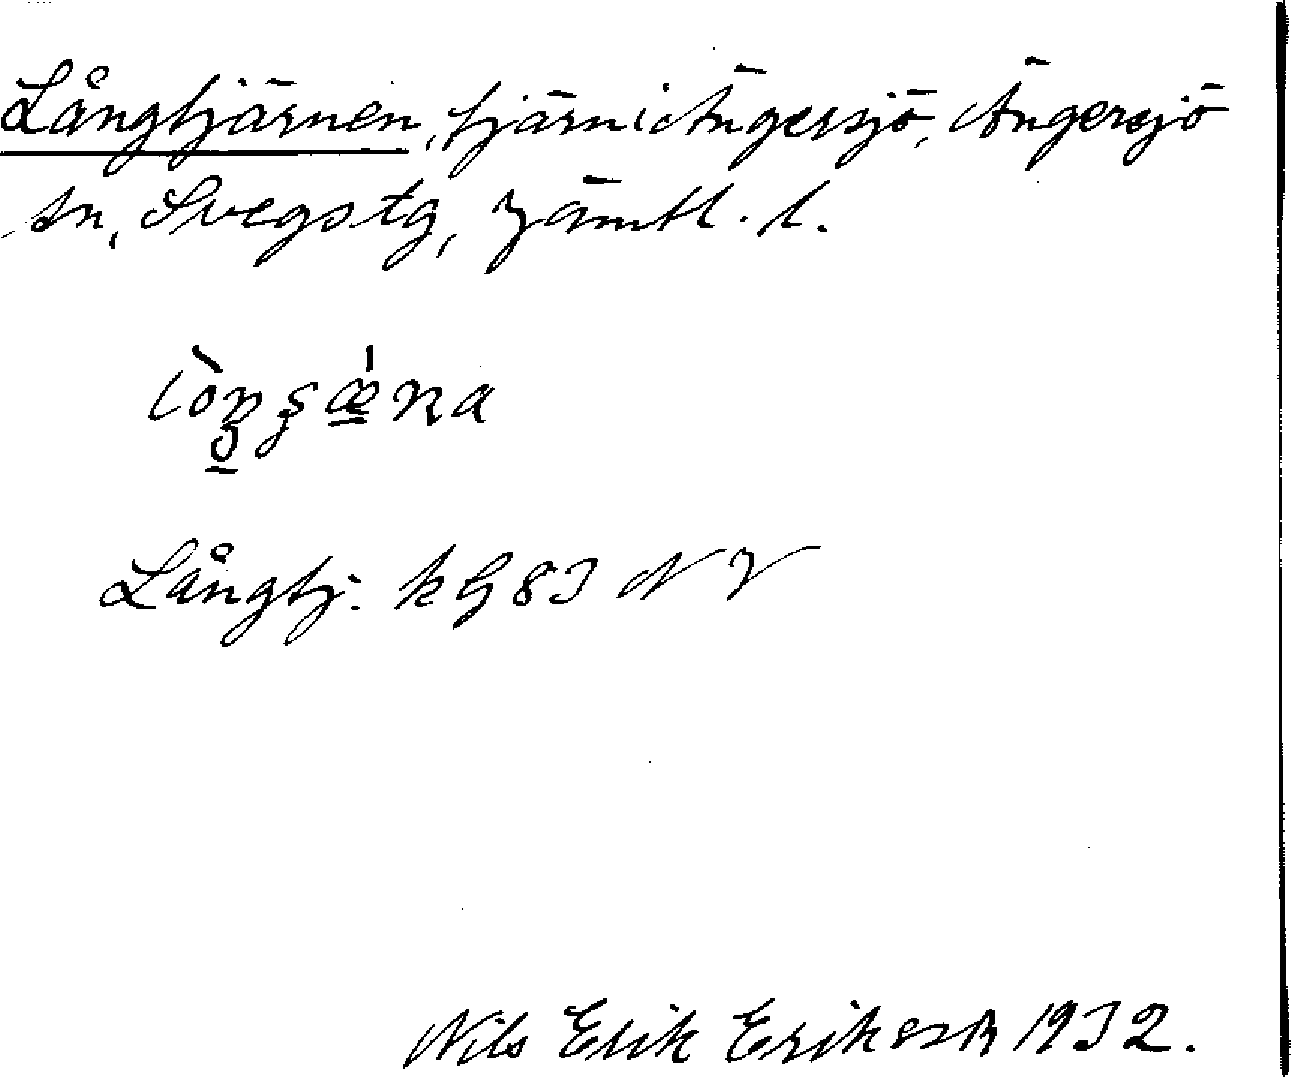 Långtjärnen, tjärn i Ängersjö, Ängersjö
sn, Svegs tg, Jämtl. l.
Långtj. k G 83 NV
Nils Erik Eriksson 1932.